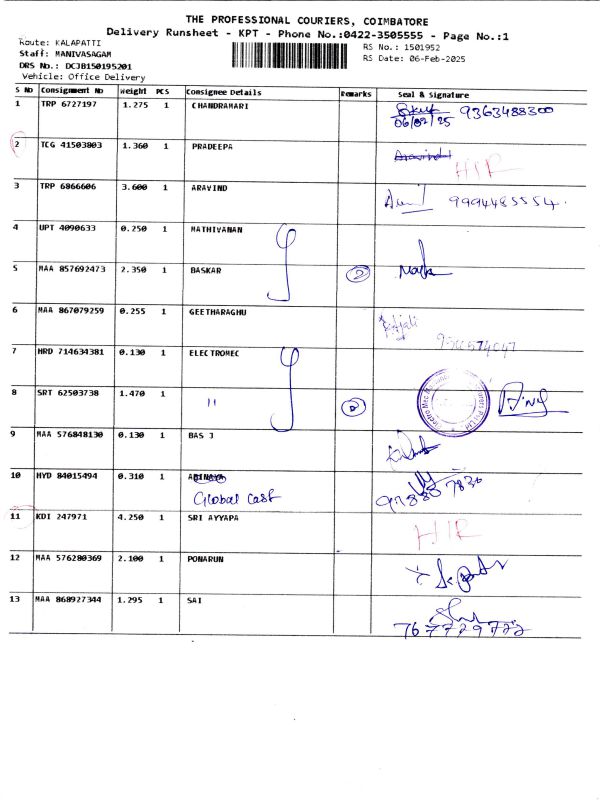 THE PROFESSIONAL COURIERS, COIMBATORE
Delivery Runsheet - KPT - Phone No.:0422-3505555 - Page No.:1
Route: KALAPATTI
Staff: MANIVASAGAM
DRS No.: DCJB150195201
Vehicle: Office Delivery
RS No.: 1501952
RS Date: 06-Feb-2025
S No Consignment No Weight PCS Consignee Details Remarks Seal & Signature
1 TRP 6727197 1.275 1 CHANDRAMARI 9363488300
06/02/25
2 TCG 41503803 1.360 1 PRADEEPA Aravind HIR
3 TRP 6866606 3.600 1 ARAVIND 9994485554.
4 UPT 4090633 0.250 1 MATHIVANAN
5 MAA 857692473 2.350 1 BASKAR 2
6 MAA 867079259 0.255 1 GEETHARAGHU
7 HRD 714634381 0.130 1 ELECTROMEC
8 SRT 62503738 1.470 1 " 2
9 MAA 576848130 0.130 1 BAS J
10 HYD 84015494 0.310 1 ABINAYA
Global Cast
11 KDI 247971 4.250 1 SRI AYYAPA HIR
12 MAA 576280369 2.100 1 PONARUN
13 MAA 868927344 1.295 1 SAI